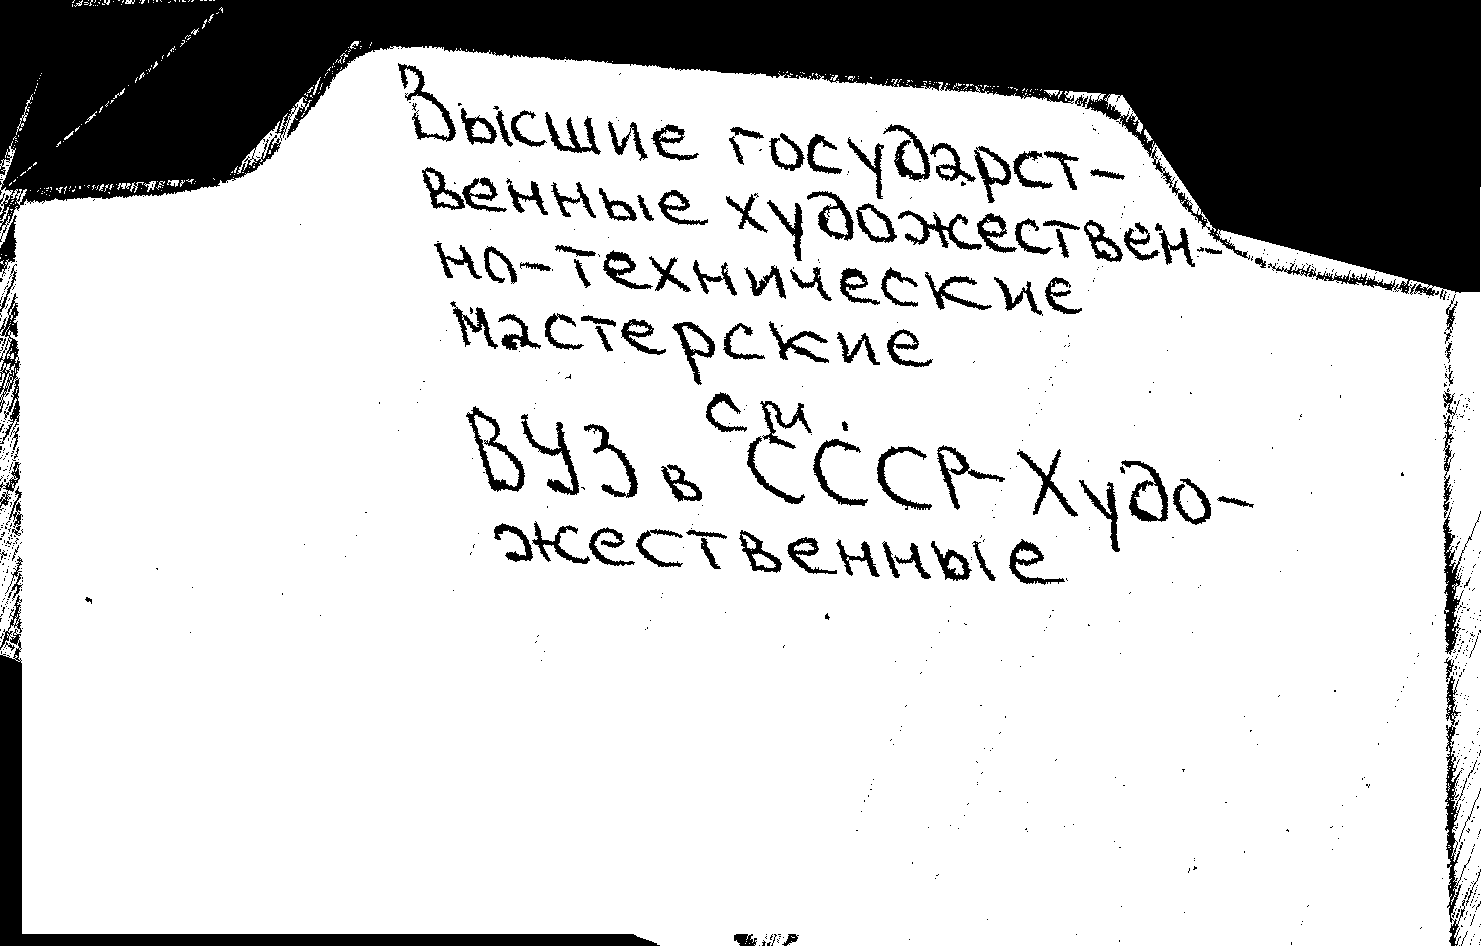 Высшие государст-
венные художествен-
но-технические
мастерские
см.
ВУЗ в СССР-Худо-
жественные